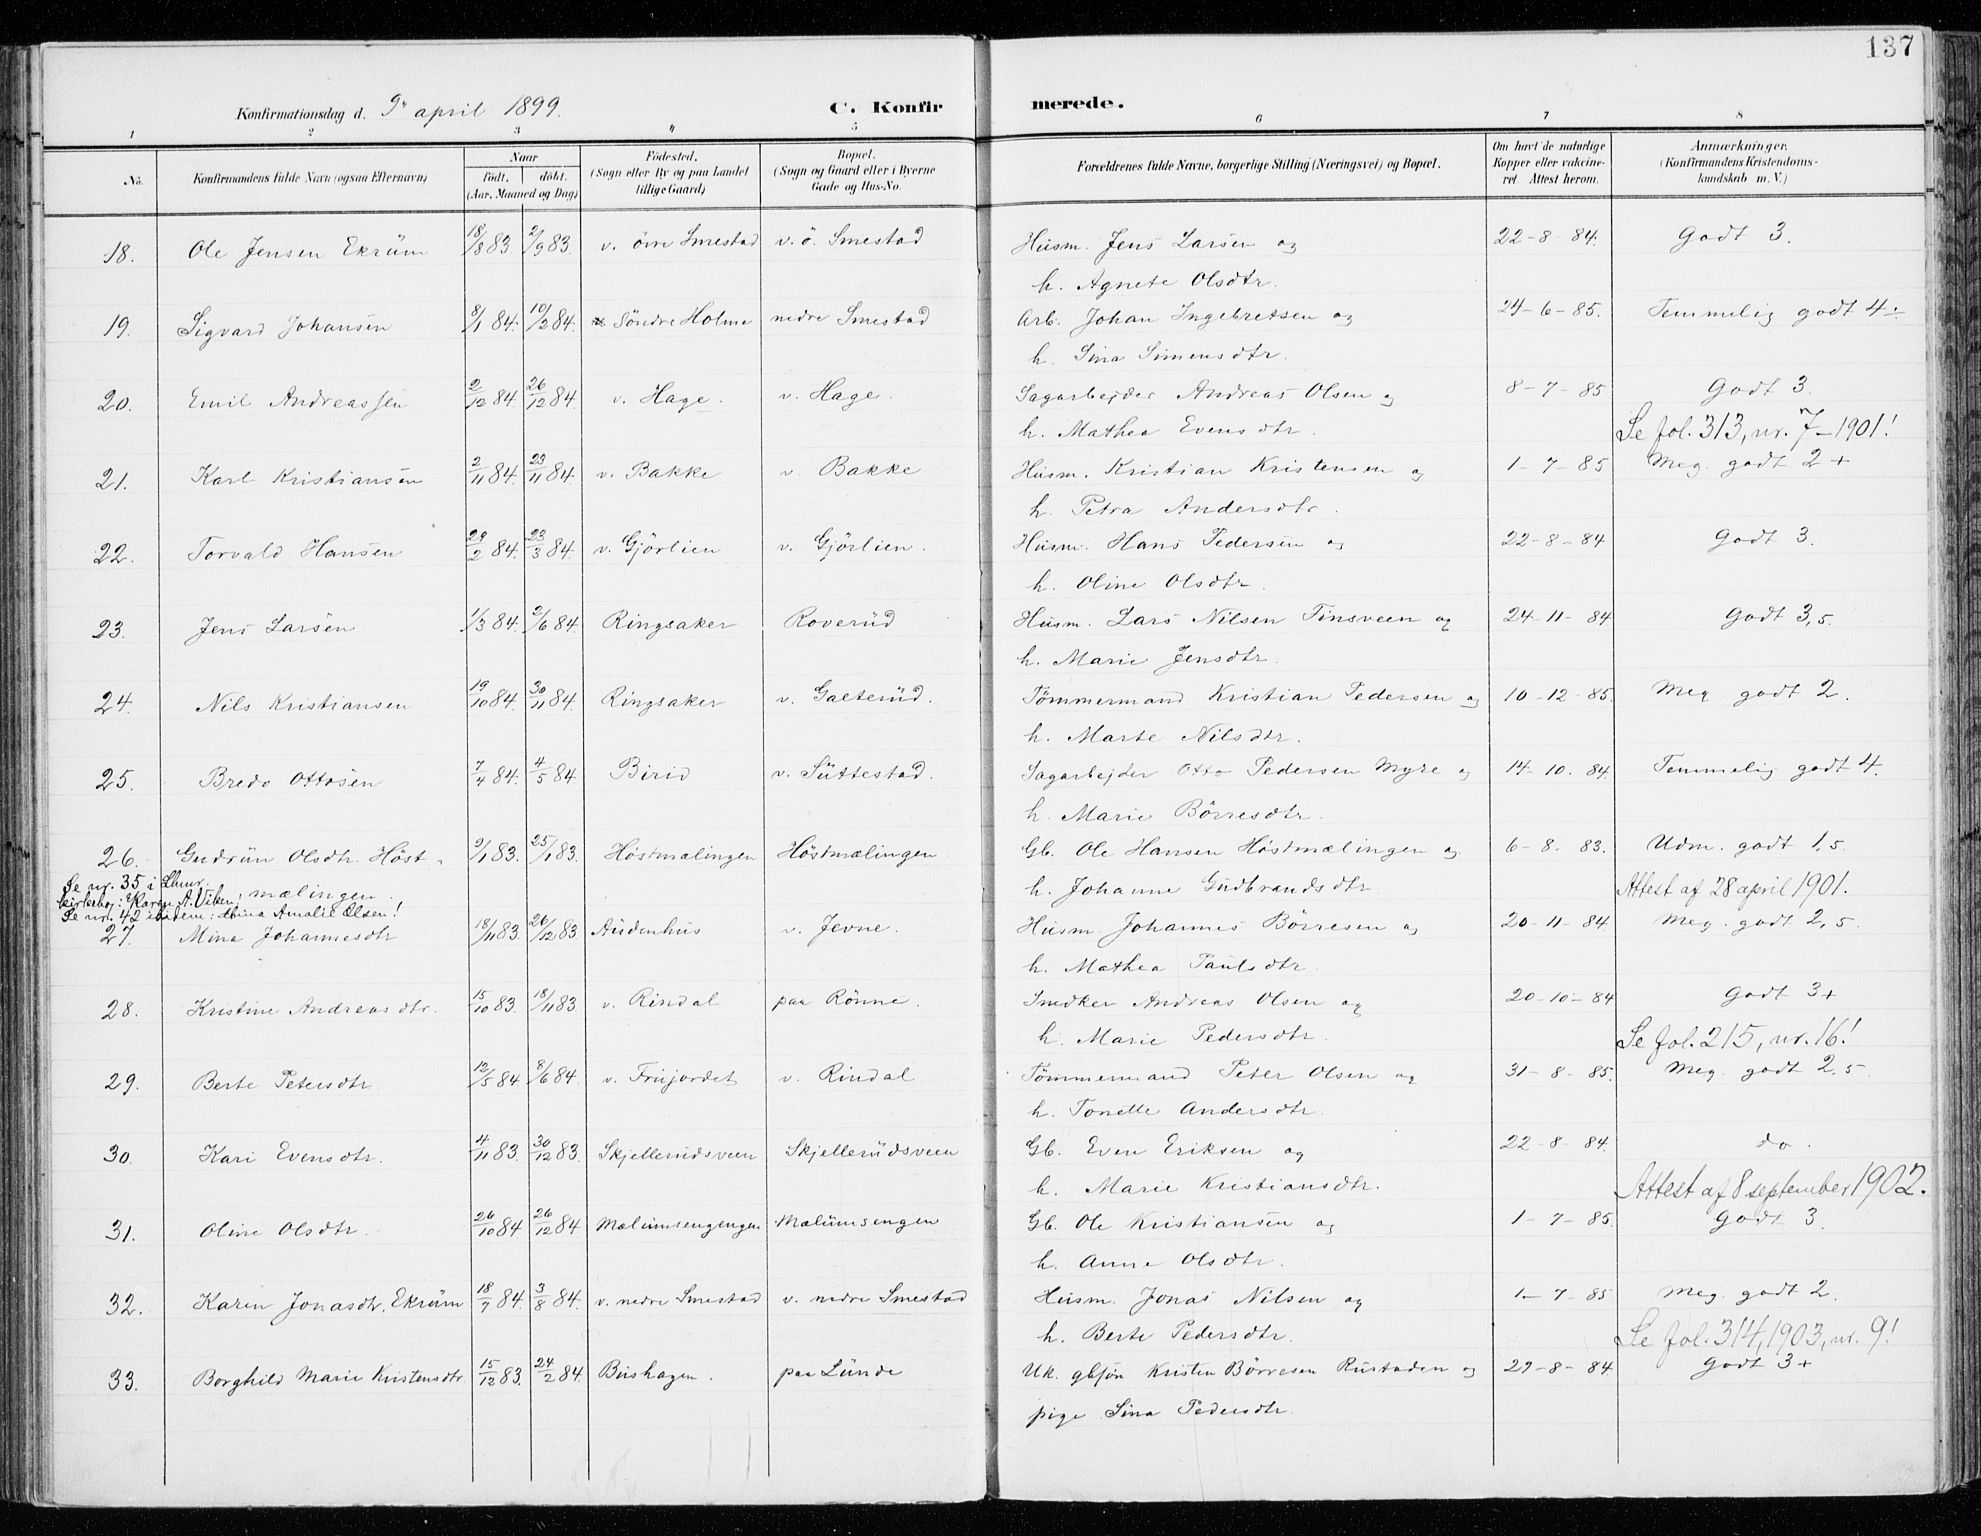 137
Konfirmationsdag d. 9de april 1899.
C. Konfirmerede.
1 2 3 4 5 6 7 8
No.
Konfirmandens fulde Navn (ogsaa Efternavn)
Naar
født. døbt.
(Aar, Maaned og Dag)
Fødested.
(Sogn eller By og paa Landet
tillige Gaard)
Bopæl.
(Sogn og Gaard eller i Byerne
Gade og Hus-No.
Forældrenes fulde Navne, borgerlige Stilling (Næringsvei) og Bopæl.
Om havt de naturlige
Kopper eller vakcine-
ret. Attest herom.
Anmærkninger,
(Konfirmandens Kristendoms-
kundskab m. V.)
18. Ole Jensen Ekrüm 18/8 83 2/9 83. v. övre Smestad v. ö. Smestad Husm. Jens Larsen og 22-8-84. Godt 3.
h. Agnete Olsdtr.
19. Sigvard Johansen 8/1 84. 10/2 84. Söndre Holme nedre Smestad Arb. Johan Ingebretsen og 24-6-85. Temmelig godt 4÷
h. Sina Simensdtr.
20. Emil Andreassen 2/12 84. 26/12 84. v. Hage. v. Hage. Sagarbejder Andreas Olsen og 8-7-85 Godt 3.
h. Mathea Evensdtr. Se fol. 313, nr. 7-1901!
21. Karl Kristiansen 2/11 84. 23/11 84. v. Bakke v. Bakke Husm. Kristian Kristensen og 1-7-85 Meg. godt 2+
h. Petra Andersdtr.
22. Torvald Hansen 29/2 84. 23/3 84. v. Gjörlien v. Gjörlien. Husm. Hans Pedersen og 22-8-84 Godt 3.
h. Oline Olsdtr.
23. Jens Larsen 1/3 84. 2/6 84. Ringsaker Roverüd Husm. Lars Nilsen Finsveen og 24-11-84 Godt 3,5.
h. Marie Jensdtr.
24. Nils Kristiansen 19/10 84. 30/11 84. Ringsaker v. Galterüd. Tömmermand Kristian Pedersen og 10-12-85. Meg godt 2.
h. Marte Nilsdtr.
25. Bredo Ottosen 7/4 84. 4/5 84 Birid v. Süttestad. Sagarbejder Otto Pedersen Myre og 14-10-84. Temmelig godt 4.
h. Marie Börresdtr.
26. Gudrün Olsdtr. Höst- 9/1 83. 25/1 83. Höstmælingen Höstmælingen. Gb. Ole Hansen Höstmælingen og 6-8-83. Udm. godt 1,5.
mælingen. h. Johanne Gudbrandsdtr Attest af 28 april 1901.
Se nr. 35 i
kirkebog: Karen A. Viken!
Se nr. 42 ibidem: Mina Amalie Olsen!
27. Mina Johannesdtr 18/11 83. 26/12 83 Audenhus v. Jevne. Husm. Johannes Börresen og 20-11-84. Meg. godt 2,5.
h. Mathea Paulsdtr.
28. Kristine Andreasdtr. 15/10 83. 18/11 83. v. Rindal paa Rönne. Snedker Andreas Olsen og 20-10-84 Godt 3+
h. Marie Pedersdtr. Se fol. 215, nr. 16!
29. Berte Petersdtr. 12/5 84. 8/6 84. v. Friijordet v. Rindal Tömmermand Peter Olsen og 31-8-85. Meg. godt 2,5
h. Tonette Andersdtr.
30. Kari Evensdtr. 4/11 83. 30/12 83. Skjellerudsveen Skjellerüdsveen Gb. Even Eriksen og 22-8-84. do.
h. Marie Kristiansdtr. Attest af 8 september 1902.
31. Oline Olsdtr. 26/10 84 26/12 84. Mælumsengengen Mælümsengen Gb. Ole Kristiansen og 1-7-85. Godt 3.
h. Anne Olsdtr.
32. Karen Jonasdtr. Ekrüm 18/7 84. 3/8 84. v. nedre Smestad v. nedre Smestad Husm. Jonas Nilsen og 1-7-85 Meg. godt 2.
h. Berte Pedersdtr. Se fol. 314, 1903, nr. 9!
33. Borghild Marie Kristensdtr. 15/12 83. 24/2 84. Büshagen. paa Lünde Uk. gbsön Kristen Börresen Rustaden og 29-8-84. Godt 3+
pige Sina Pedersdtr.